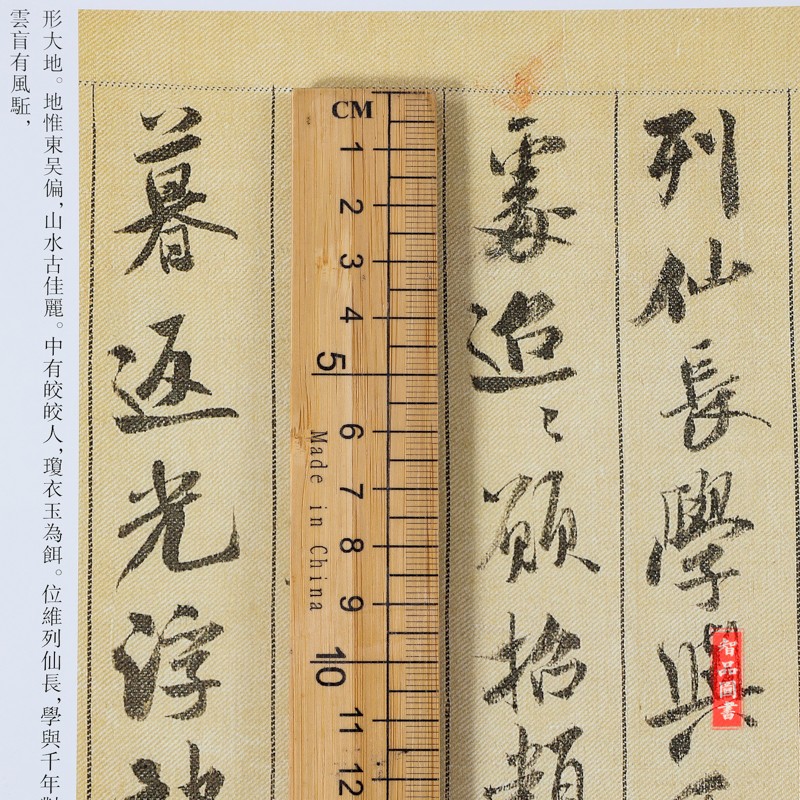 列仙長學與
處迢〻願招類
CM
1
2
3
4
5
6
7
8
9
10
11
12
Made in China
暮返光浮
形大地。地惟東吴偏,山水古佳麗。中有皎皎人,瓊衣玉為餌。位維列仙長,學與千年對
雲盲有風駈,
智品圖書